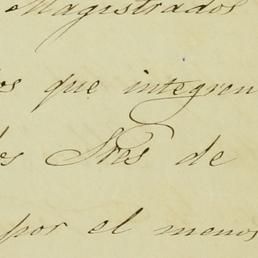 Magistrados
os que integren
os Sres de
por el menos